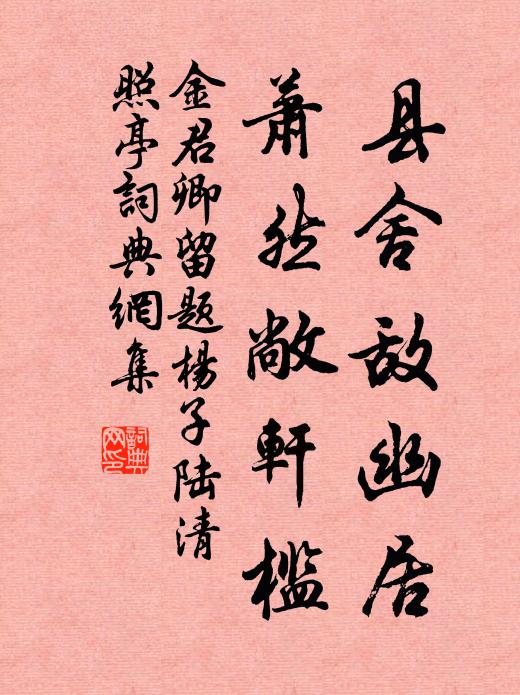 县舍敌幽居
萧然敞軒槛
金君卿留题楊子陆清
照亭詞典網集
詞典
网印